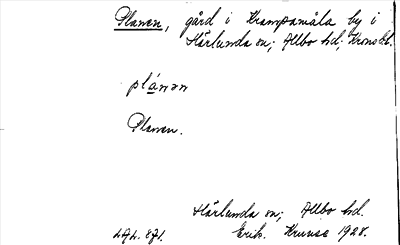 Planen, gård i Krampamåla by i
Härlunda sn; Allbo hd; Kronob.l.
plánən
Planen.
Härlunda sn; Allbo hd.
Erik. Krunse 1928.